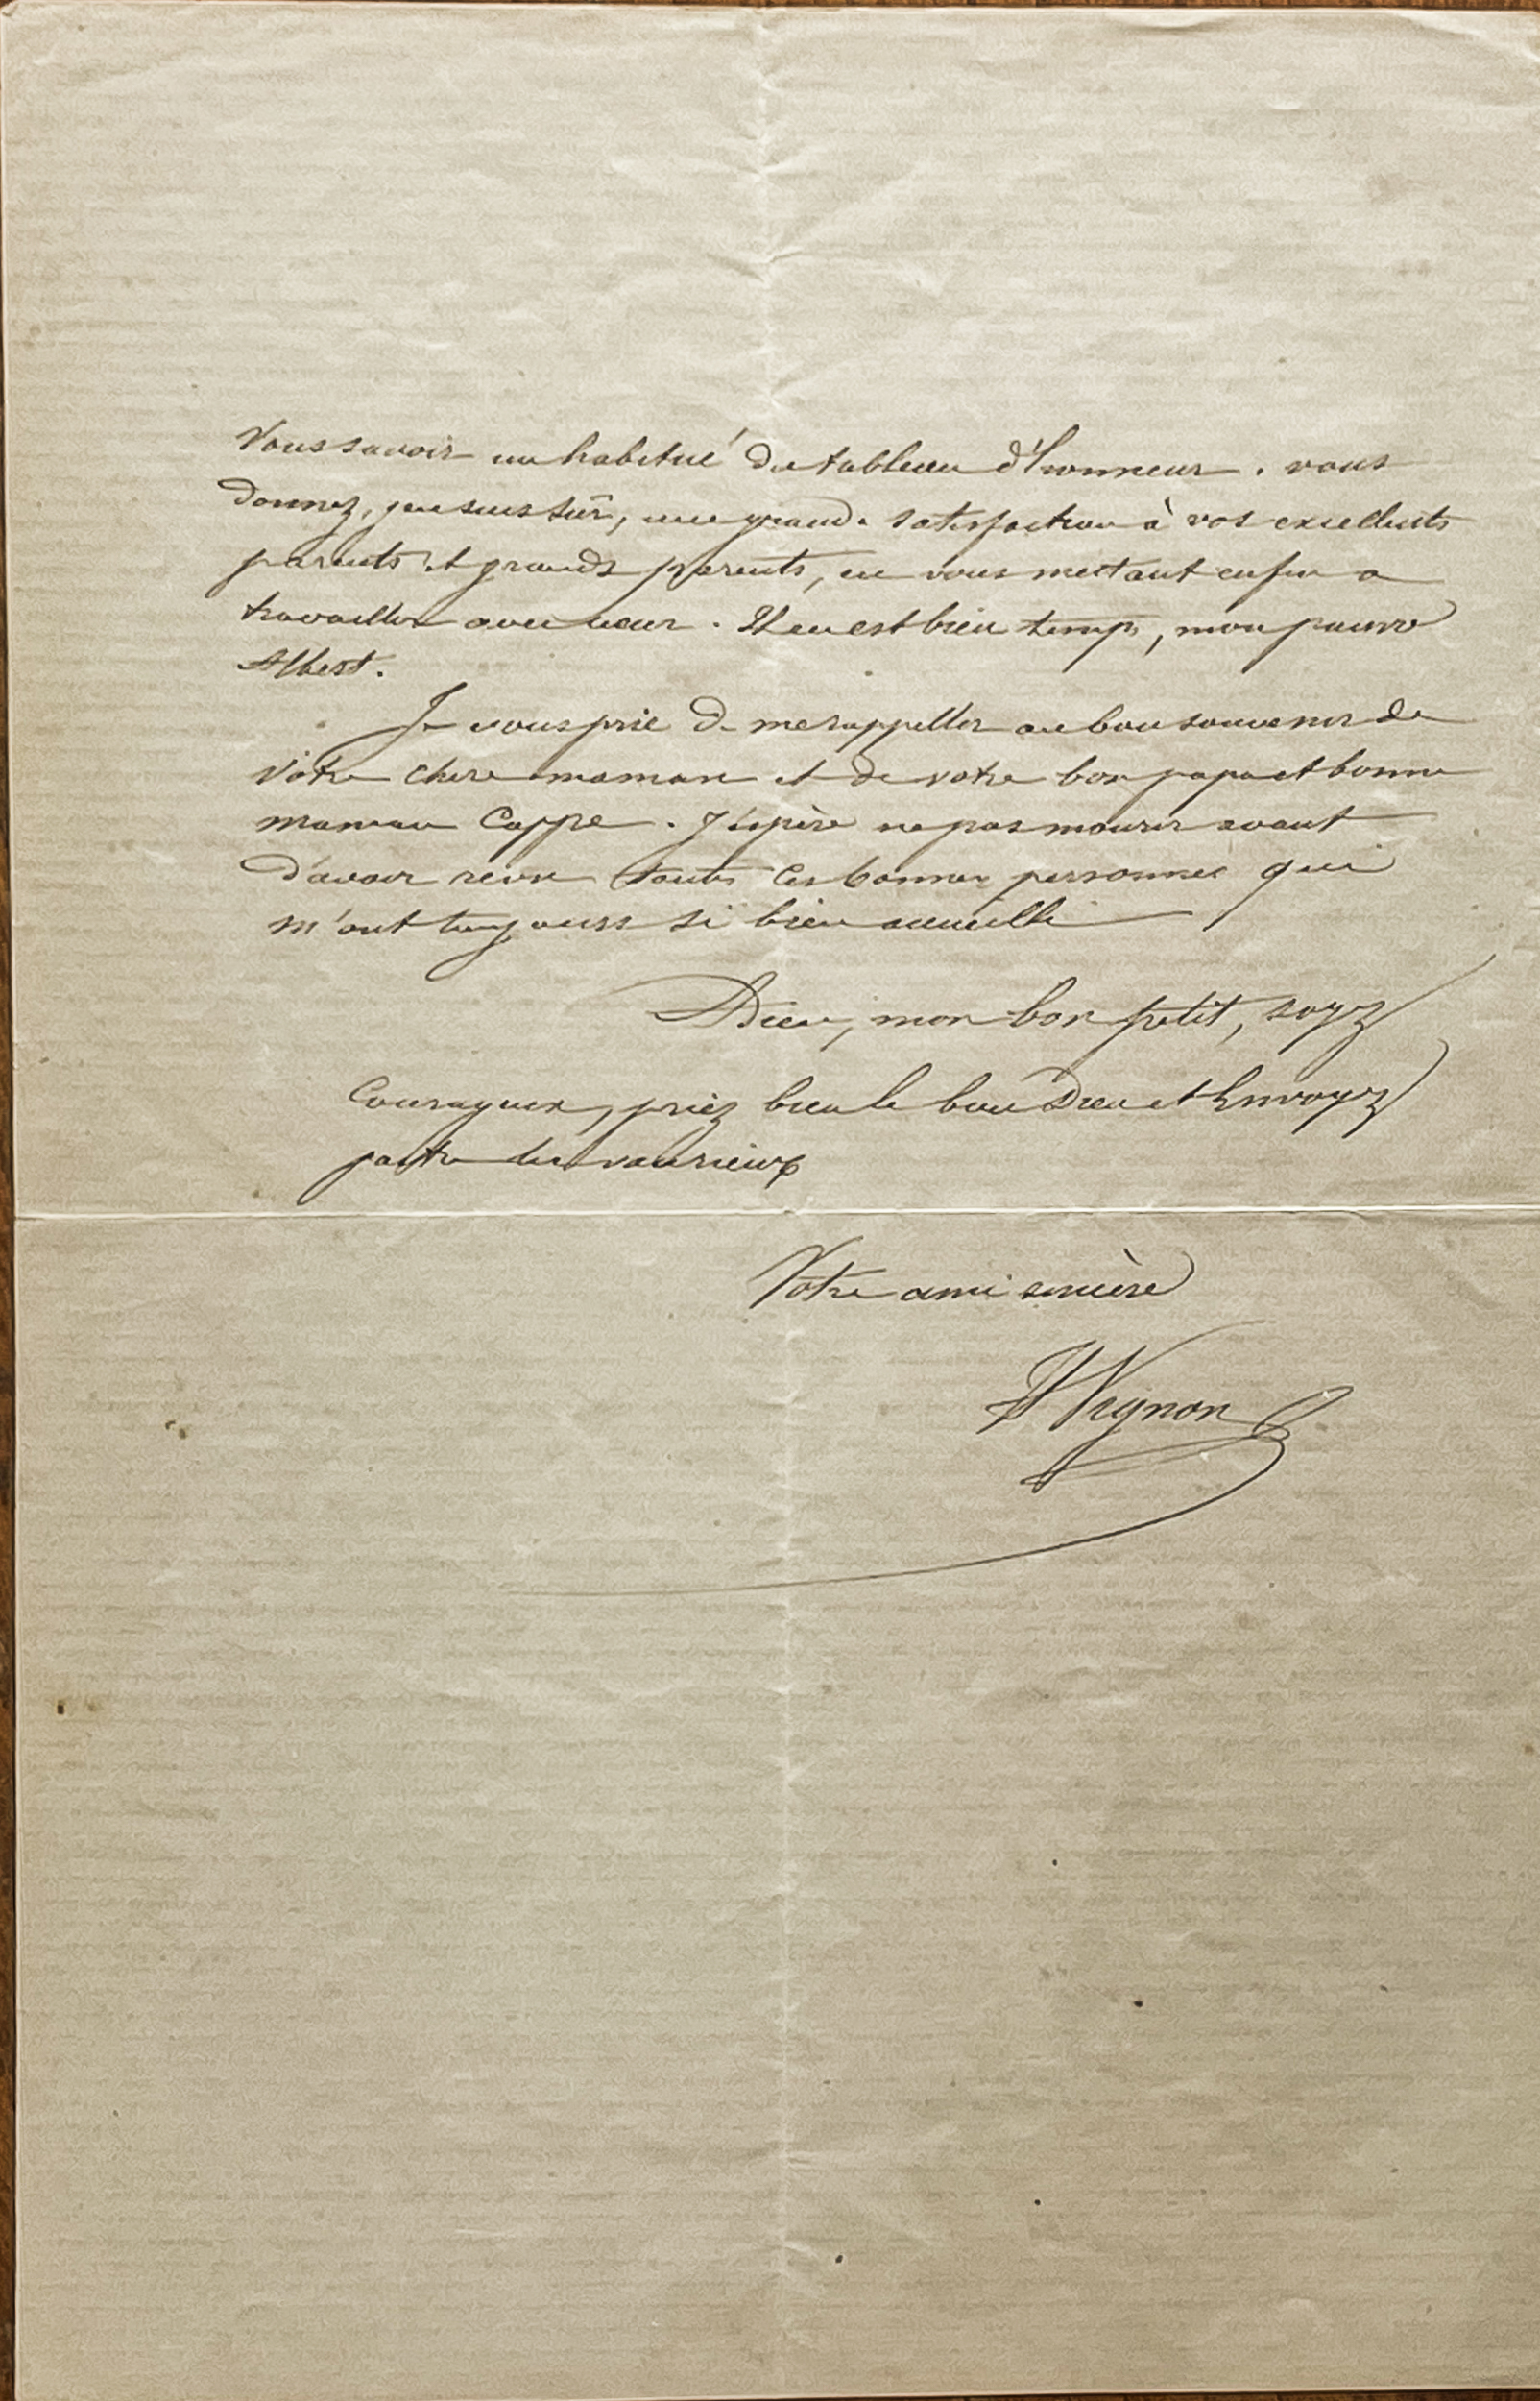 Vous savoir un habitué du tableau d'honneur. vous
donnez, j'en suis sûr, une grande satisfaction à vos excellents
parents et grands parents, en vous mettant enfin a
travailler avec cœur. Il en est bien temps, mon pauvre
Albert.
Je vous prie de me rappeller au bon souvenir de
votre chere maman et de votre bon papa et bonne
maman Cappe. J'espère ne pas mourir avant
d'avoir revu toutes ces bonnes personnes qui
m'ont toujours si bien accueilli
Adieu, mon bon petit, soyez
Courageux, priez bien le bon Dieu et Envoyez
paitre les vauriens
Votre ami sincère
Vignon